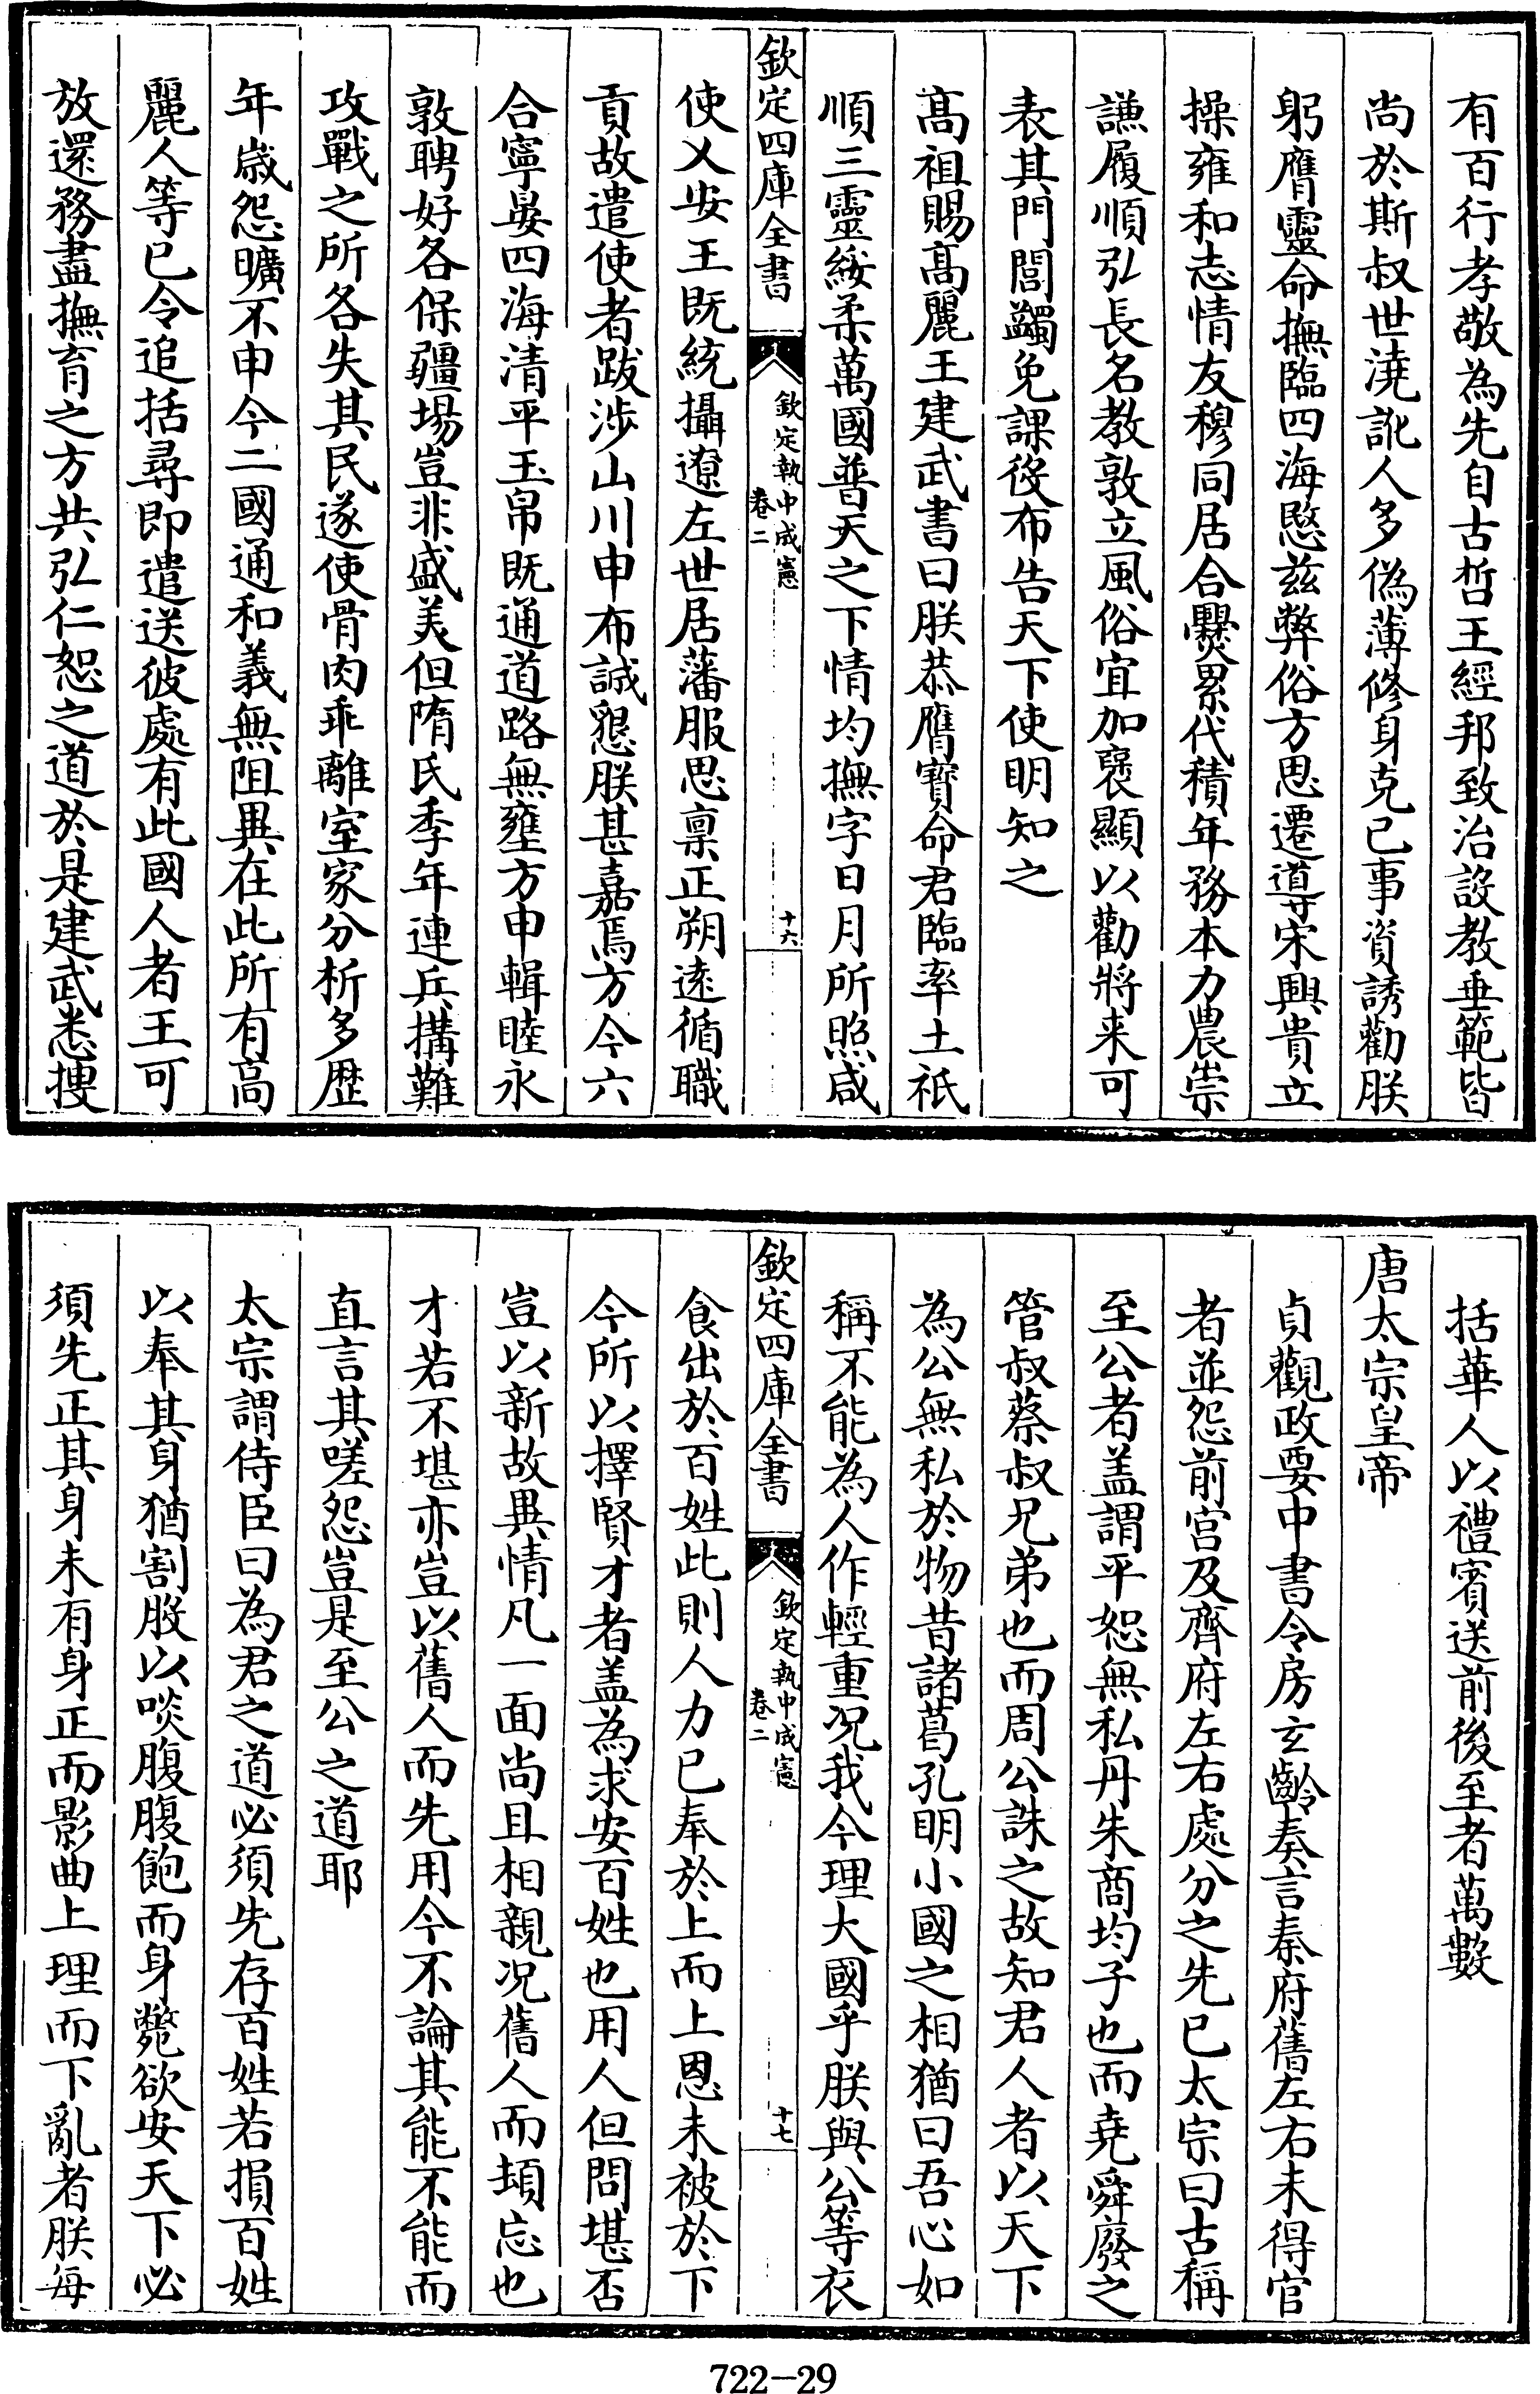 有百行孝敬為先自古哲王經邦致治設教垂範皆
尚於斯叔世澆訛人多偽薄修身克己事資誘勸朕
躬膺靈命撫臨四海愍兹弊俗方思遷導宋興貴立
操雍和志情友穆同居合爨累代積年務本力農崇
謙履順弘長名教敦立風俗宜加褒顯以勸將来可
表其門閭蠲免課役布告天下使明知之
高祖賜高麗王建武書曰朕恭膺寳命君臨率土祇
順三靈綏柔萬國普天之下情均撫字日月所照咸
欽定四庫全書
欽定執中成憲
卷二
十六
使乂安王既統攝遼左世居藩服思禀正朔逺循職
貢故遣使者跋涉山川申布誠懇朕甚嘉焉方今六
合寧晏四海清平玉帛既通道路無壅方申輯睦永
敦聘好各保疆場豈非盛美但隋氏季年連兵搆難
攻戰之所各失其民遂使骨肉乖離室家分析多歷
年歲怨曠不申今二國通和義無阻異在此所有高
麗人等已令追括尋即遣送彼處有此國人者王可
放還務盡撫育之方共弘仁恕之道於是建武悉搜
括華人以禮賓送前後至者萬數
唐太宗皇帝
貞觀政要中書令房玄齡奏言秦府舊左右未得官
者並怨前宫及齊府左右處分之先已太宗曰古稱
至公者盖謂平恕無私丹朱商均子也而堯舜廢之
管叔蔡叔兄弟也而周公誅之故知君人者以天下
為公無私於物昔諸葛孔明小國之相猶曰吾心如
稱不能為人作輕重况我今理大國乎朕與公等衣
欽定四庫全書
欽定執中成憲
卷二
十七
食出於百姓此則人力已奉於上而上恩未被於下
今所以擇賢才者盖為求安百姓也用人但問堪否
豈以新故異情凡一面尚且相親况舊人而頓忘也
才若不堪亦豈以舊人而先用今不論其能不能而
直言其嗟怨豈是至公之道耶
太宗謂侍臣曰為君之道必須先存百姓若損百姓
以奉其身猶割股以啖腹腹飽而身斃欲安天下必
須先正其身未有身正而影曲上理而下亂者朕每
722-29